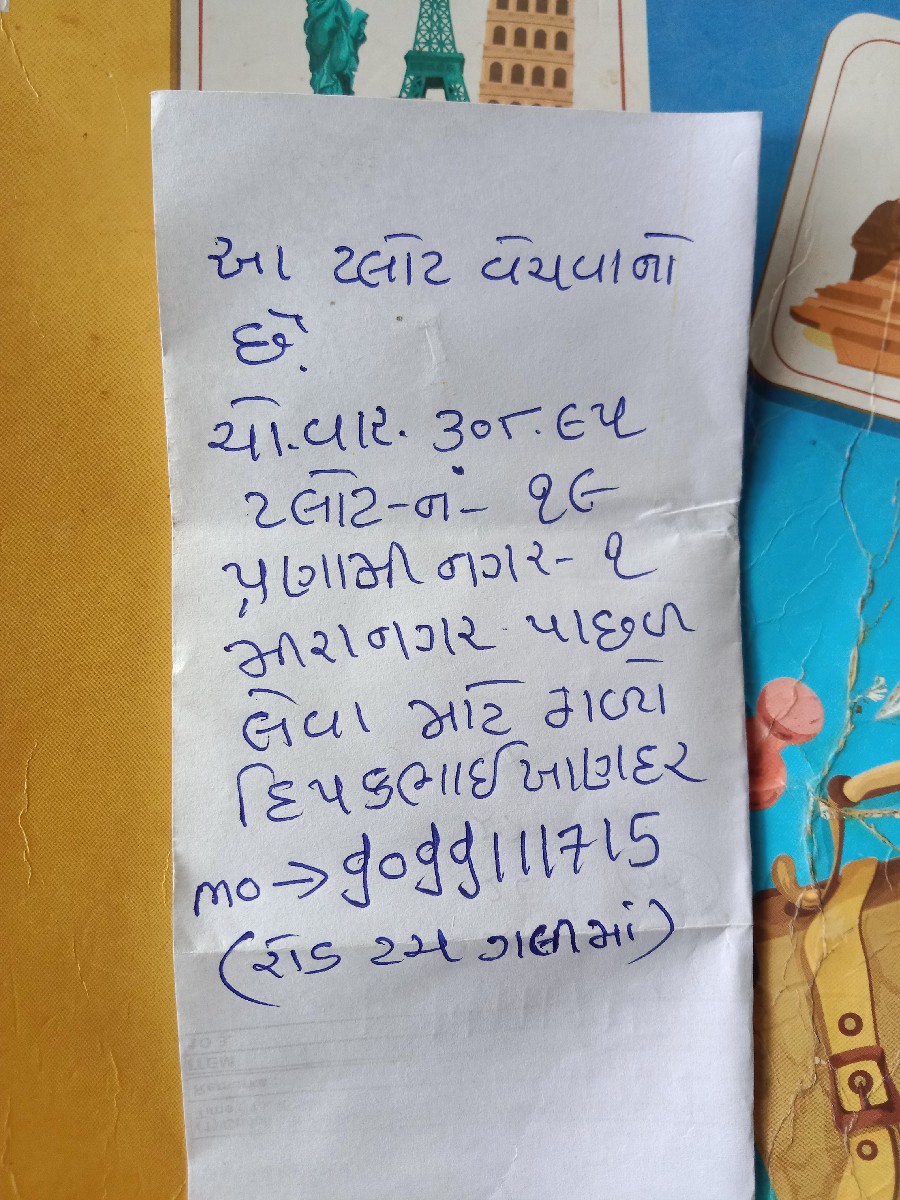 આ પ્લોટ વેચવાનો
છે.
ચો.વાર. ૩૦૮.૯૫
પ્લોટ-નં- ૧૯
પ્રણામી નગર- ૧
મીરાનગર પાછળ
લેવા માટે મળો
દિપકભાઈ ખાણદર
mo → 9099111715
(રોડ ટચ ગલીમાં)